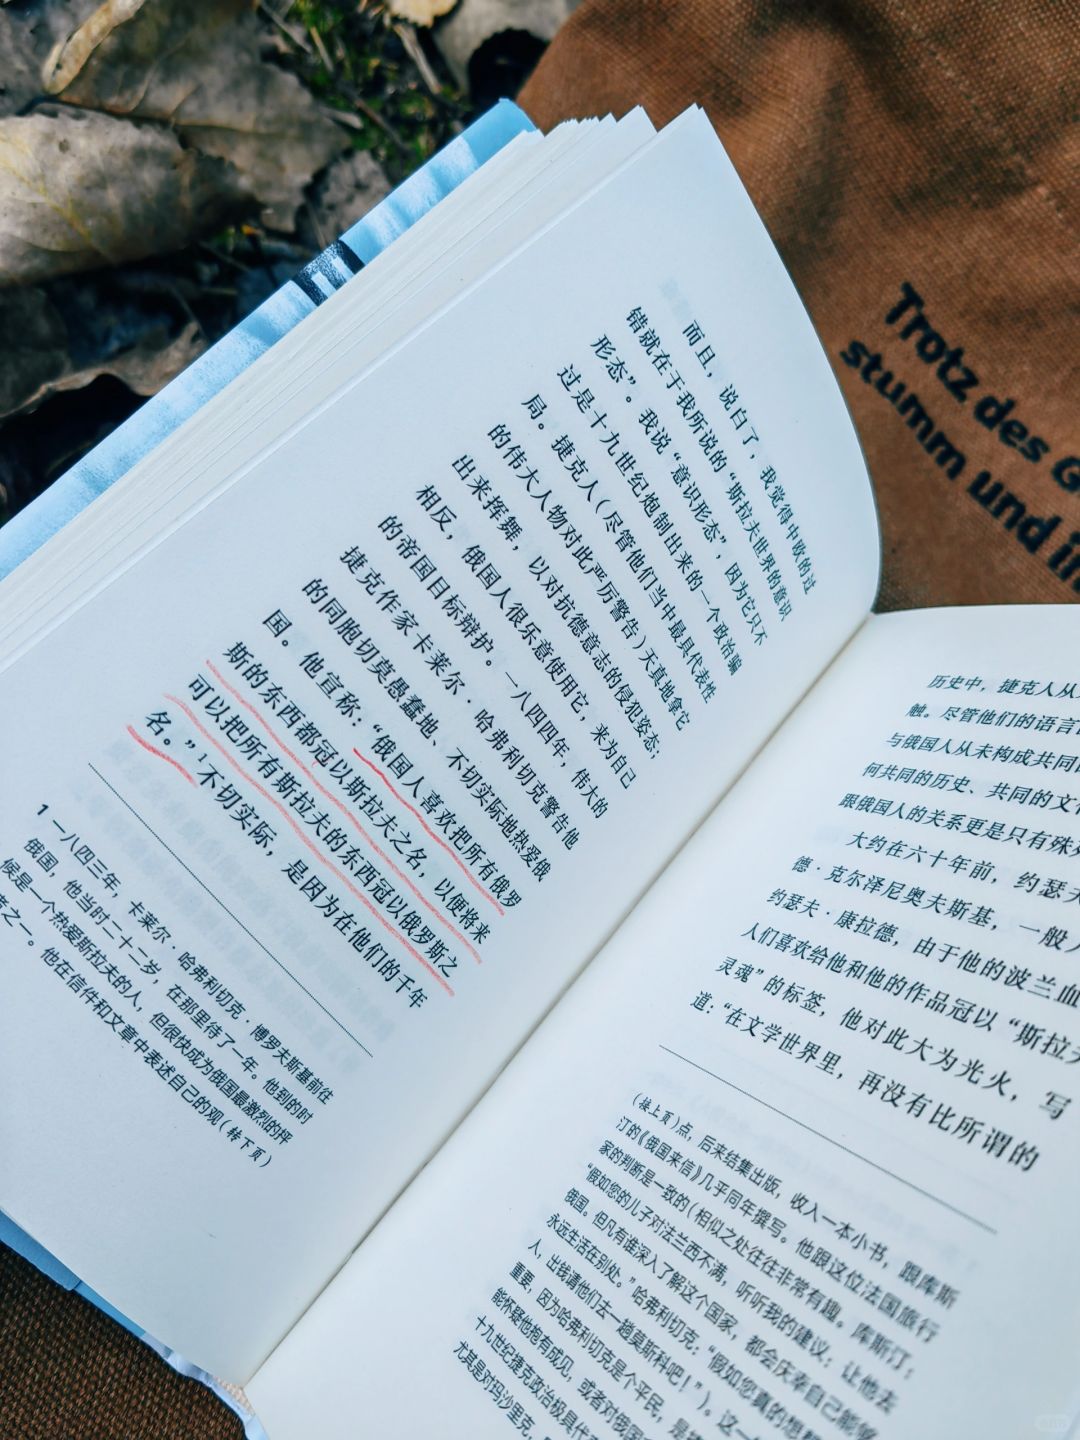 而且，说白了，我觉得中欧的过
错就在于我所说的“斯拉夫世界的意识
形态”。我说“意识形态”，因为它只不
过是十九世纪炮制出来的一个政治骗
局。捷克人（尽管他们当中最具代表性
的伟大人物对此严厉警告）天真地拿它
出来挥舞，以对抗德意志的侵犯姿态；
相反，俄国人很乐意使用它，来为自己
的帝国目标辩护。一八四四年，伟大的
捷克作家卡莱尔·哈弗利切克警告他
的同胞切莫愚蠢地、不切实际地热爱俄
国。他宣称：“俄国人喜欢把所有俄罗
斯的东西都冠以斯拉夫之名，以便将来
可以把所有斯拉夫的东西冠以俄罗斯之
名。”1不切实际，是因为在他们的千年
1 一八四三年，卡莱尔·哈弗利切克·博罗夫斯基前往
俄国，他当时二十二岁，在那里待了一年。他到的时
候是一个热爱斯拉夫的人，但很快成为俄国最激烈的抨
者之一。他在信件和文章中表述自己的观（转下页）
历史中，捷克人从
触。尽管他们的语言
与俄国人从未构成共同
何共同的历史、共同的文
跟俄国人的关系更是只有
大约在六十年前，约瑟夫
德·克尔泽尼奥夫斯基，一般人
约瑟夫·康拉德，由于他的波兰血
人们喜欢给他和他的作品冠以“斯拉夫
灵魂”的标签，他对此大为光火，写
道：“在文学世界里，再没有比所谓的
（接上页）点，后来结集出版，收入一本小书，跟库斯
汀的《俄国来信》几乎同年撰写。他跟这位法国旅行
家的判断是一致的（相似之处往往非常有趣。库斯汀：
“假如您的儿子对法兰西不满，听听我的建议：让他去
俄国。但凡有谁深入了解这个国家，都会庆幸自己能够
永远生活在别处。”哈弗利切克：“假如您真的想
人，出钱请他们去一趟莫斯科吧！”）。这一
重要，因为哈弗利切克是个平民，是
能怀疑他抱有成见，或者对俄国
十九世纪捷克政治极具代
尤其是对玛沙里克，
Trotz des
stumm und